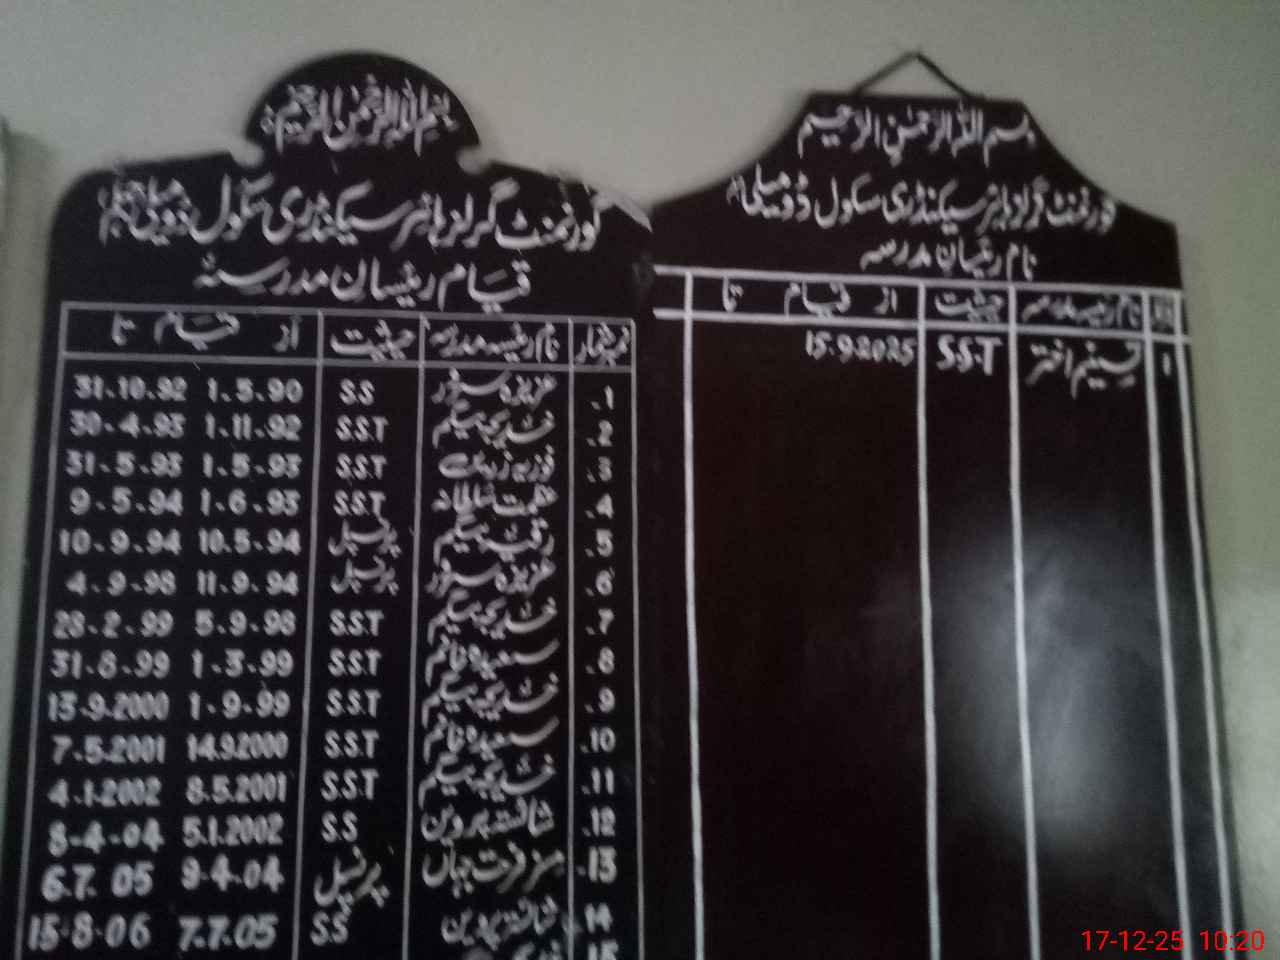 بسم اللہ الرحمن الرحیم
گورنمنٹ گرلز ہائر سیکنڈری سکول ڈومیلی جہلم
قیام رئیسان مدرسہ
نمبر شمار نام رئیسہ مدرسہ حیثیت از قیام تا
1. عزیزہ سرور S.S 1.5.90 31.10.92
2. خدیجہ بیگم S.S.T 1.11.92 30.4.93
3. فوزیہ زریں S.S.T 1.5.93 31.5.93
4. عظمت سلطانہ S.S.T 1.6.93 9.5.94
5. رقیہ بیگم پرنسپل 10.5.94 10.9.94
6. عزیزہ سرور پرنسپل 11.9.94 4.9.98
7. خدیجہ بیگم S.S.T 5.9.98 28.2.99
8. سعیدہ خانم S.S.T 1.3.99 31.8.99
9. خدیجہ بیگم S.S.T 1.9.99 13.9.2000
10. سعیدہ خانم S.S.T 14.9.2000 7.5.2001
11. خدیجہ بیگم S.S.T 8.5.2001 4.1.2002
12. شائستہ پروین S.S 5.1.2002 8-4-04
13. مسز فرحت جہاں پرنسپل 9-4-04 6.7.05
14. شائستہ پروین S.S 7.7.05 15.8.06
15
بسم اللہ الرحمٰن الرحیم
گورنمنٹ گرلز ہائر سیکنڈری سکول ڈومیلی جہلم
نام رئیسان مدرسہ
نام رئیسہ مدرسہ حیثیت از قیام تا
1 تسنیم اختر S.S.T 15.9.2025
17-12-25 10:20